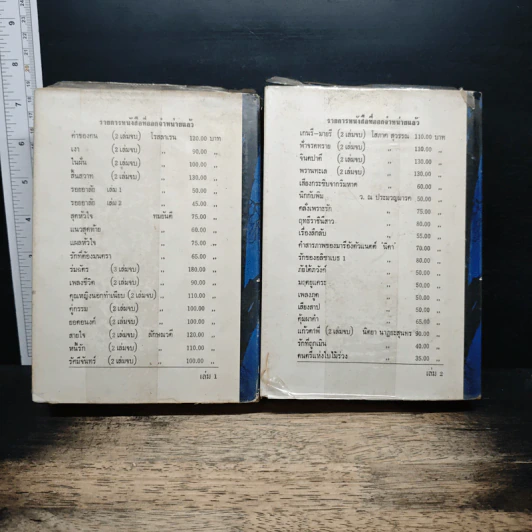 รายการหนังสือที่ออกจำหน่ายแล้ว
ค่าของคน (2 เล่มจบ) โรสลาเรน 120.00 บาท
เงา (2 เล่มจบ) „ 90.00 „
ในฝัน (2 เล่มจบ) „ 100.00 „
สิ้นสวาท (2 เล่มจบ) „ 130.00 „
รอยอาลัย เล่ม 1 „ 50.00 „
รอยอาลัย เล่ม 2 „ 45.00 „
สุดหัวใจ ทมยันตี 75.00 „
แนวสุดท้าย „ 60.00 „
แผลหัวใจ „ 75.00 „
รักที่ต้องมนตรา „ 65.00 „
ร่มฉัตร (2 เล่มจบ) „ 180.00 „
เพลงชีวิต (2 เล่มจบ) „ 90.00 „
คุณหญิงนอกทำเนียบ (2 เล่มจบ) „ 110.00 „
คู่กรรม (2 เล่มจบ) „ 100.00 „
ยอดอนงค์ (2 เล่มจบ) „ 100.00 „
สายใจ (2 เล่มจบ) ลักษณวดี 120.00 „
หนี้รัก (2 เล่มจบ) „ 110.00 „
รัศมีจันทร์ (2 เล่มจบ) „ 100.00 „
เล่ม 1
รายการหนังสือที่ออกจำหน่ายแล้ว
เกนรี-มายรี (2 เล่มจบ) โสภาค สุวรรณ 110.00 บาท
ฟ้าจรดทราย (2 เล่มจบ) „ 110.00 „
จินตปาตี (2 เล่มจบ) „ 130.00 „
พรานทะเล (2 เล่มจบ) „ 130.00 „
เสียงกระซิบจากริมหาด „ 60.00 „
นิกกับพิม ว. ณ ประมวญมารค 50.00 „
คลั่งเพราะรัก „ 75.00 „
ฤทธิ์ราชินีสาว „ 60.00 „
เรื่องลึกลับ „ 55.00 „
คำสารภาพของมารีอังตัวแนตต์ "นิดา" 70.00 „
รักของอลิซาเบธ 1 „ 60.00 „
ภัยใต้ภวังค์ „ 60.00 „
„ 60.00 „
เพลงภูต „ 60.00 „
เสียงสาป „ 50.00 „
คุ้มผาคำ „ 65.00 „
แก้วตาพี่ (2 เล่มจบ) นิตยา นาฏยะสุนทร 90.00 „
รักที่ถูกเมิน „ 40.00 „
คนตรีแห่งใบไม้ร่วง „ 35.00 „
เล่ม 2